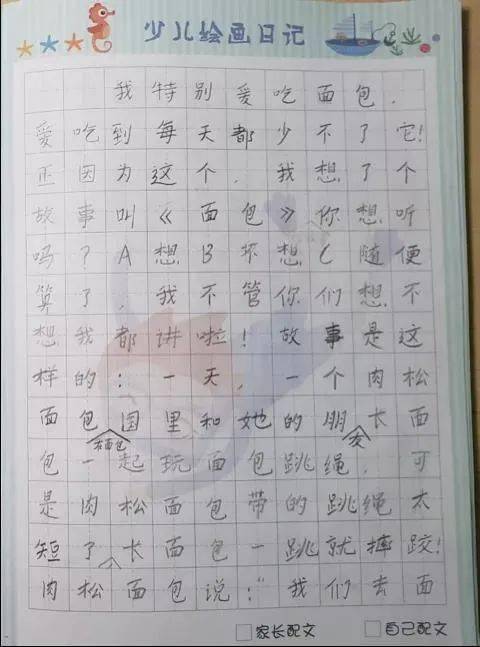 少儿绘画日记
我特别爱吃面包,
爱吃到每天都少不了它!
正因为这个,我想了个
故事叫《面包》你想听
吗?A想B坏想C随便
算了,我不管你们想不
想我都讲啦!故事是这
样的:一天,一个肉松
面包国里和她的朋长面
在面包 友
包一起玩面包跳绳,可
是肉松面包带的跳绳太
短了长面包一跳就摔跤!
肉松面包说:“我们去面
家长配文 自己配文